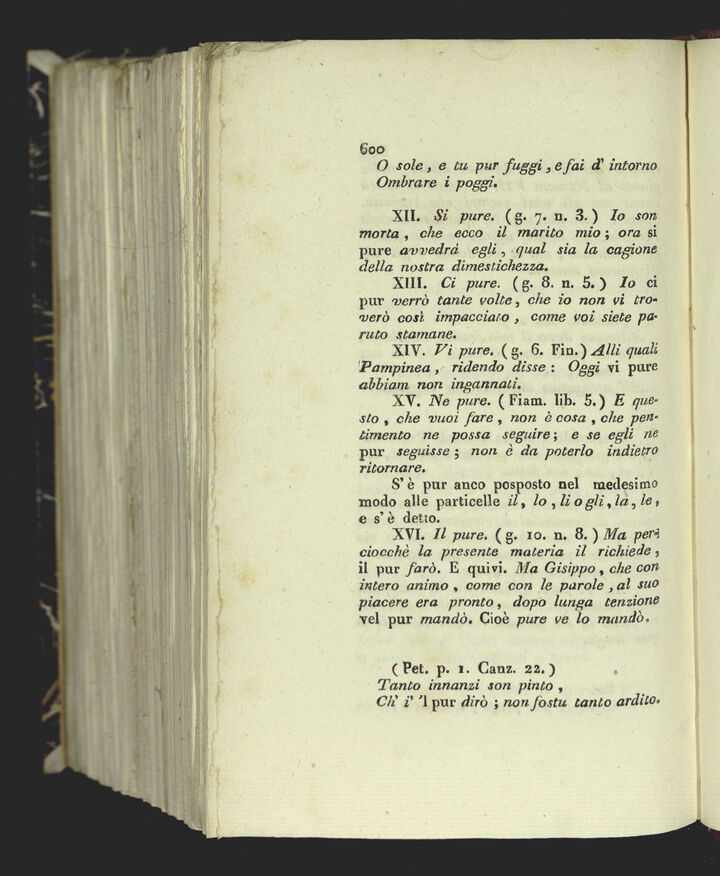 600
O sole, e tu pur fuggi, e fai d' intorno
Ombrare i poggi.
XII. Si pure. (g. 7. n. 3.) Io son
morta, che ecco il marito mio; ora si
pure avvedrà egli, qual sia la cagione
della nostra dimestichezza.
XIII. Ci pure. (g. 8. n. 5.) Io ci
pur verrò tante volte, che io non vi tro-
verò così impacciato, come voi siete pa-
ruto stamane.
XIV. Vi pure. (g. 6. Fin.) Alli quali
Pampinea, ridendo disse: Oggi vi pure
abbiam noi ingannati.
XV. Ne pure. (Fiam. lib. 5.) E que-
sto, che vuoi fare, non è cosa, che pen-
timento ne possa seguire; e se egli ne
pur seguisse; non è da poterlo indietro
ritornare.
S' è pur anco posposto nel medesimo
modo alle particelle il, lo, li o gli, la, le,
e s' è detto.
XVI. Il pure. (g. 10. n. 8.) Ma per-
ciocchè la presente materia il richiede,
il pur farò. E quivi. Ma Gisippo, che con
intero animo, come con le parole, al suo
piacere era pronto, dopo lunga tenzione
vel pur mandò. Cioè pure ve lo mandò.
(Pet. p. 1. Canz. 22.)
Tanto innanzi son pinto,
Ch' i' 'l pur dirò; non fostu tanto ardito.